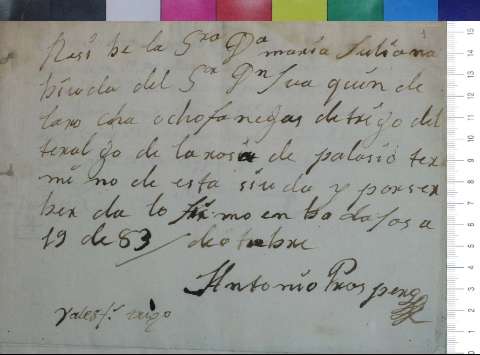 Resi be la Sra Da maria Juliana
biuda del Sor Dn Jua quin de
laro cha ocho fanegas de trigo del
teral go de la rosa de palasio ter
mi no de esta siuda y por ser
ber da lo firmo en badajos a
19 de 83 / de otubre
Antonio Prospero
trigo